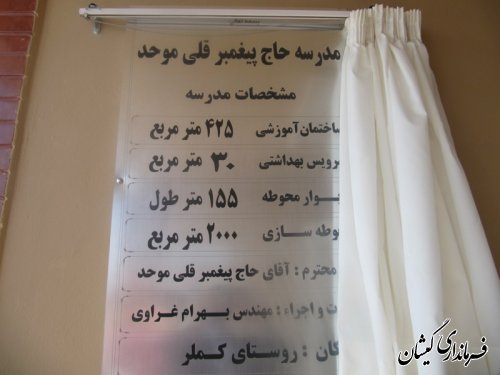 بسمه تعالی
مدرسه حاج پیغمبر قلی موحد
مشخصات مدرسه
ساختمان آموزشی ۴۲۵ متر مربع
سرویس بهداشتی ۳۰ متر مربع
یوار محوطه ۱۵۵ متر طول
وطه سازی ۲۰۰۰ متر مربع
محترم : آقای حاج پیغمبر قلی موحد
ت و اجراء : مهندس بهرام غراوی
کان : روستای کملر
فرمانداری گمیشان